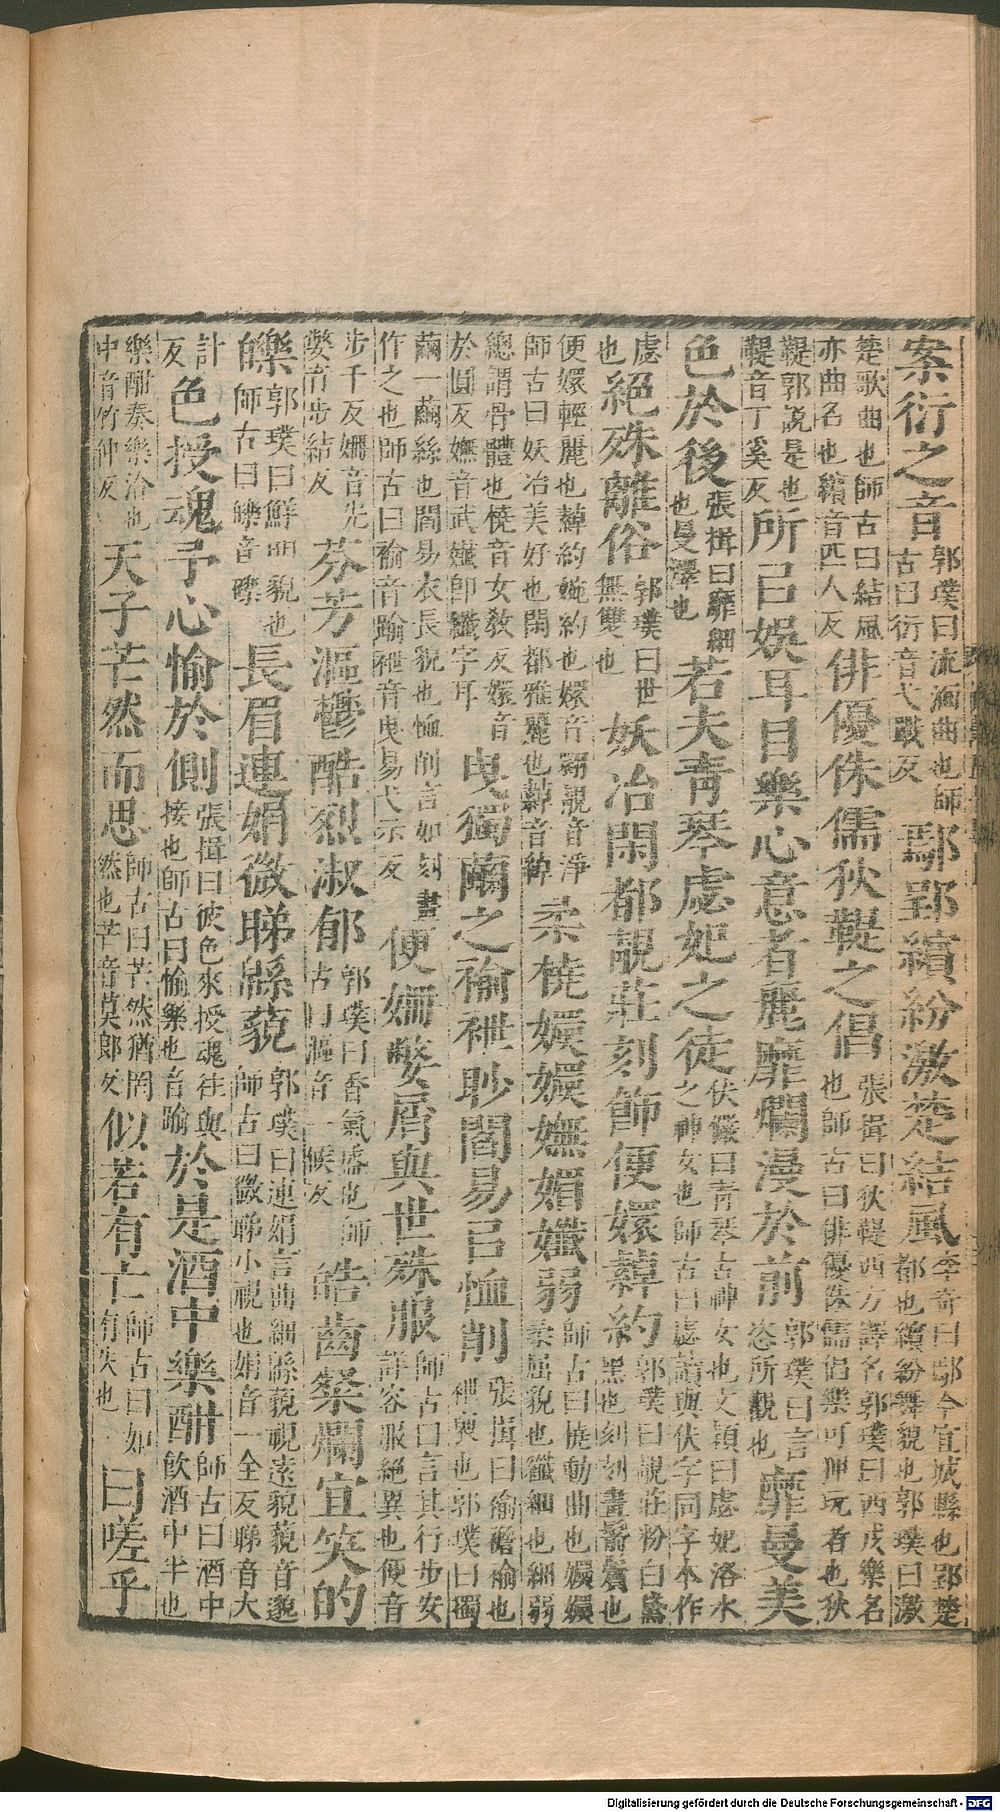 案衍之音郭璞曰流湎曲也師古曰衍音弋戰反鄢郢繽紛激楚結風李奇曰鄢今宜城縣也郢楚都也繽紛舞貌也郭璞曰激
楚歌曲也師古曰結風亦曲名也繽音匹人反俳優侏儒狄鞮之倡張揖曰狄鞮西方譯名郭璞曰西戎樂名也師古曰俳優侏儒倡樂可狎玩者也狄
鞮郭說是也鞮音丁奚反所㠯娛耳目樂心意者麗靡爛漫於前郭璞曰言恣所觀也靡曼美
色於後張揖曰靡細也曼澤也若夫青琴虙妃之徒伏儼曰青琴古神女也文穎曰虙妃洛水之神女也師古曰虙讀與伏字同字本作
虙也絕殊離俗郭璞曰世無雙也妖冶閑都靚莊刻飾便嬛綽約郭璞曰靚莊粉白黛黑也刻刻畫鬋鬢也
便嬛輕麗也綽約婉約也嬛音翾靚音淨師古曰妖冶美好也閑都雅麗也綽音綽柔橈嬛嬛嫵媚孅弱師古曰橈動曲也嬛嬛柔屈貌也孅細也細弱
總謂骨體也橈音女教反嬛音於圓反嫵音武孅即纖字耳曳獨繭之褕袣眇閻易㠯恤削張揖曰褕襜褕也袣襲也郭璞曰獨
繭一繭絲也閻易衣長貌也恤削言如刻畫作之也師古曰褕音踰袣音曳易弋示反便姍嫳屑與世殊服師古曰言其行步安詳容服絕異也便音
步千反姍音先嫳音步結反芬芳漚鬱酷烈淑郁郭璞曰香氣盛也師古曰漚音一候反皓齒粲爛宜笑的
皪郭璞曰鮮明貌也師古曰皪音礫長眉連娟微睇緜藐郭璞曰連娟言曲細緜藐視遠貌藐音邈師古曰微睇小視也娟音一全反睇音大
計反色授魂予心愉於側張揖曰彼色來授魂往與接也師古曰愉樂也音踰於是酒中樂酣師古曰酒中飲酒中半也
樂酣奏樂洽也中音竹仲反天子芒然而思師古曰芒然猶罔然也芒音莫郎反似若有亡師古曰如有失也曰嗟乎
Digitalisierung gefördert durch die Deutsche Forschungsgemeinschaft - DFG